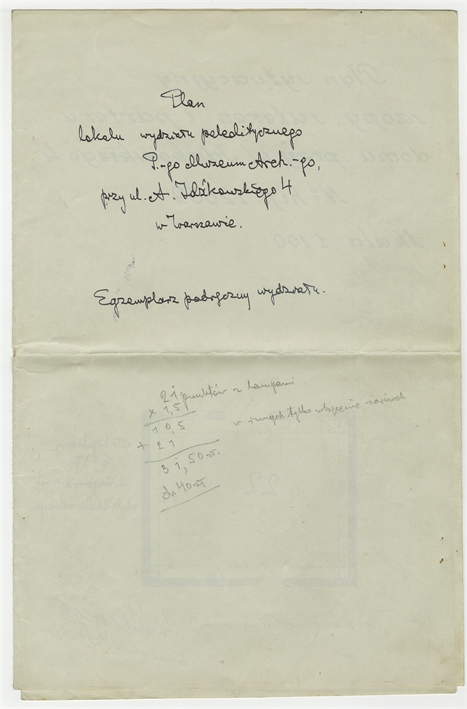 Plan
lokalu wydziału paleolitycznego
P.-go Muzeum Arch.-go,
przy ul. A. Idźkowskiego 4
w Warszawie.
Egzemplarz podręczny wydziału.
21 punktów z lampami
x 1,51
w innych tylko włączenie
10,5
+ 21
31,50 zł.
do 40 zł
22